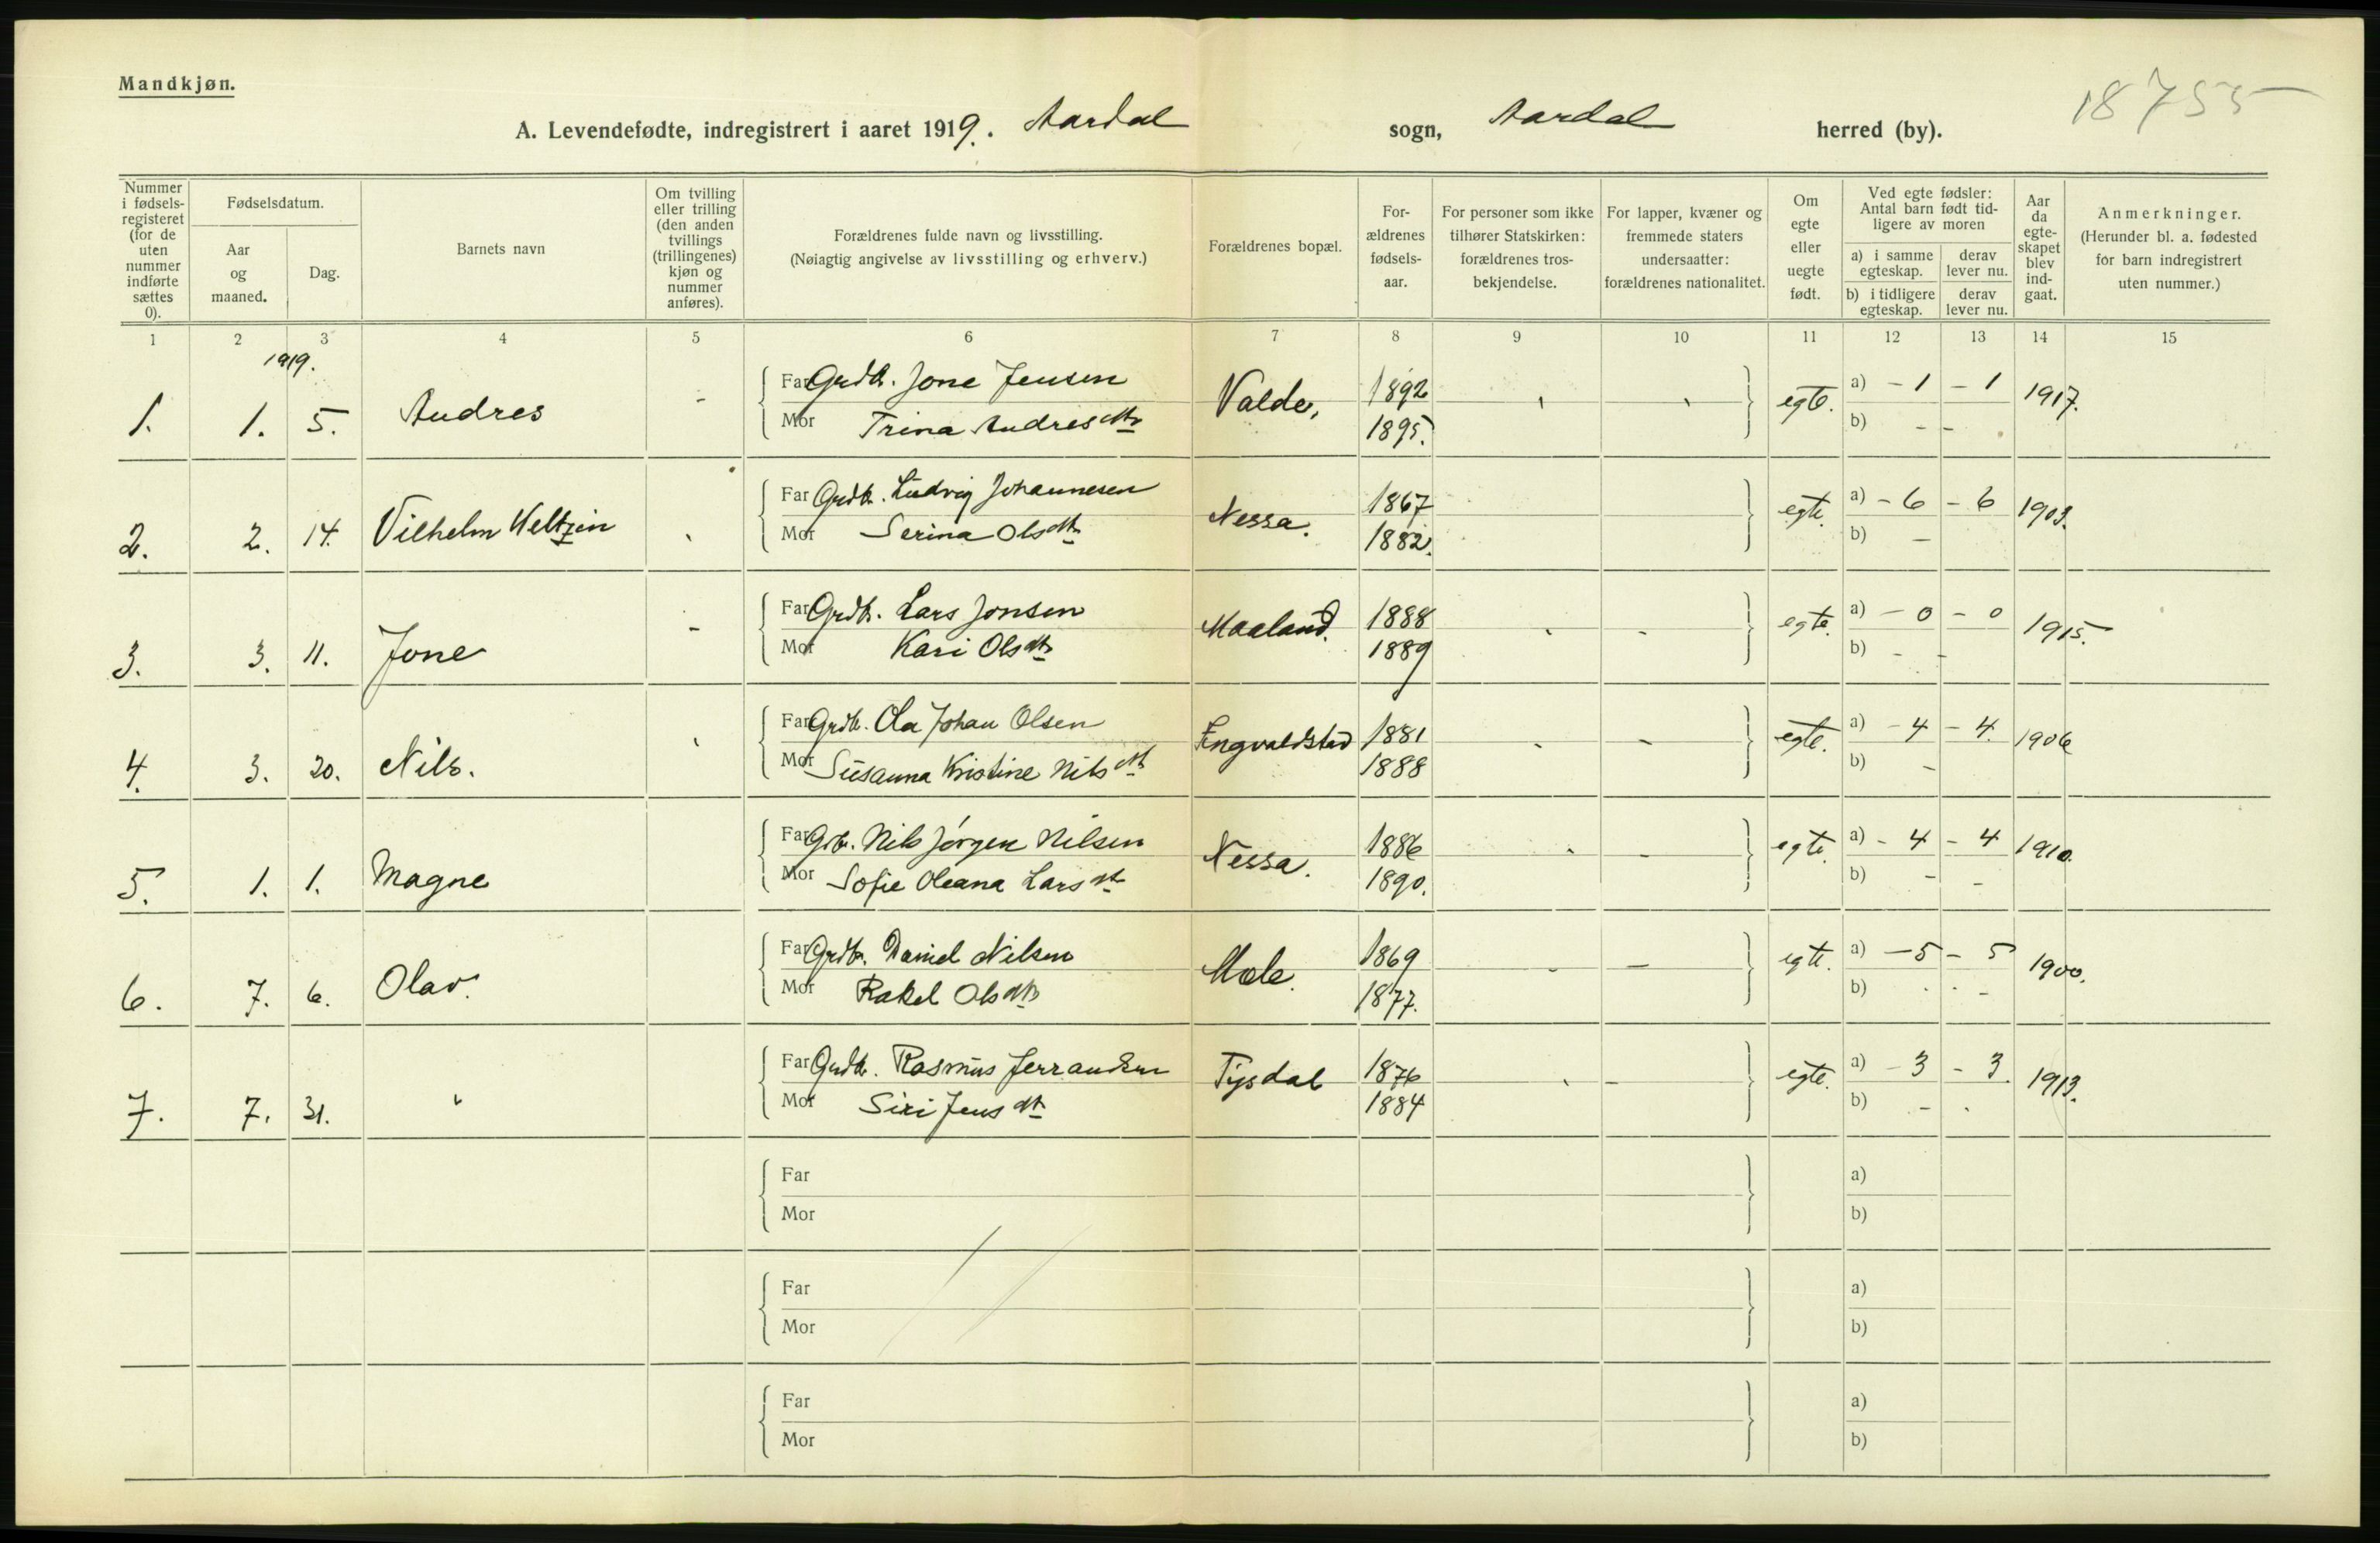 Mandkjøn.
18755
A. Levendefødte, indregistrert i aaret 1919. Aardal sogn, Aardal herred (by).
Nummer i fødsels-registeret (for de uten nummer indførte sættes 0).
Fødselsdatum.
Aar og maaned.
Dag.
Barnets navn
Om tvilling eller trilling (den anden tvillings (trillingenes) kjøn og nummer anføres).
Forældrenes fulde navn og livsstilling.
(Nøiagtig angivelse av livsstilling og erhverv.)
Forældrenes bopæl.
For-ældrenes fødsels-aar.
For personer som ikke tilhører Statskirken: forældrenes tros-bekjendelse.
For lapper, kvæner og fremmede staters undersaatter: forældrenes nationalitet.
Om egte eller uegte født.
Ved egte fødsler: Antal barn født tid-ligere av moren
a) i samme egteskap.
derav lever nu.
b) i tidligere egteskap.
derav lever nu.
Aar da egte-skapet blev ind-gaat.
Anmerkninger.
(Herunder bl. a. fødested for barn indregistrert uten nummer.)
1 2 3 4 5 6 7 8 9 10 11 12 13 14 15
1919.
1. 1. 5. Andres - Far Grdb. Jone Jensen Valde, 1892 egte. a) - 1 - 1 1917.
Mor Trina Andresdtr 1895. b) - -
2. 2. 14. Vilhelm Weltzin Far Grdb. Ludvig Johannesen Nessa. 1867 egte. a) - 6 - 6 1903.
Mor Serina Olsdtr 1882. b) -
3. 3. 11. Jone - Far Grdb. Lars Jonsen Maaland. 1888 - egte. a) - 0 - 0 1915.
Mor Kari Olsdtr 1889 b) - -
4. 3. 20. Nils. Far Grdb. Ola Johan Olsen 1881 - - egte. a) - 4 - 4. 1906
Mor Susanna Kristine Nilsdtr 1888 b) -
5. 1. 1. Magne Far Grb. Nils Jørgen Nilsen Nessa. 1886 - egte. a) - 4 - 4 1910.
Mor Sofie Oleana Larsdtr 1890. b) - -
6. 7. 6. Olav. Far Grdb. Daniel Nilsen Mæle. 1869 - - egte. a) - 5 - 5 1900.
Mor Rakel Olsdtr 1877. b) -
7. 7. 31. " Far Grdb. Rasmus Jerrandsen Tysdal 1876 - egte. a) - 3 - 3. 1913.
Mor Siri Jensdtr 1884 b) -
Far a)
Mor b)
Far a)
Mor b)
Far a)
Mor b)